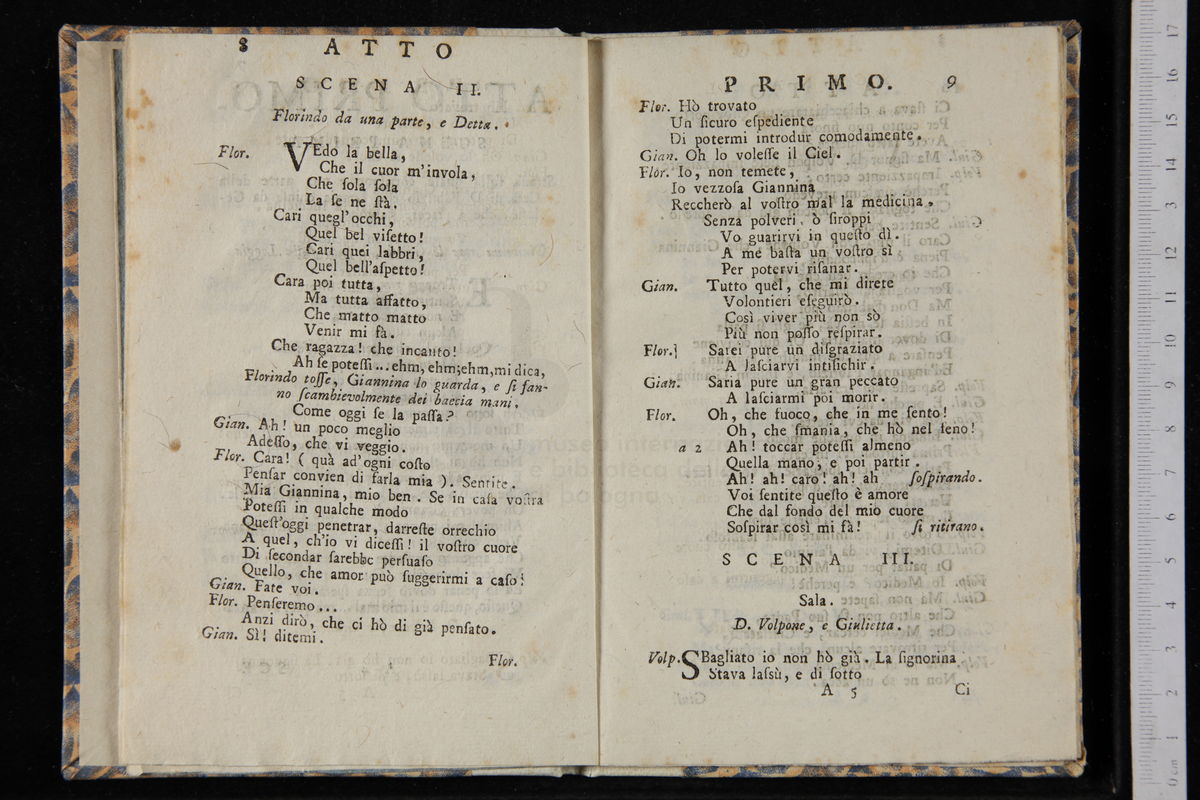 8 ATTO
SCENA II.
Florindo da una parte, e Detta.
Flor. VEdo la bella,
Che il cuor m'invola,
Che ſola ſola
La ſe ne ſtà.
Cari quegl'occhi,
Quel bel viſetto!
Cari quei labbri,
Quel bell'aſpetto!
Cara poi tutta,
Ma tutta affatto,
Che matto matto
Venir mi fà.
Che ragazza! che incanto!
Ah ſe poteſſi ... ehm, ehm; ehm, mi dica,
Florindo toſſe, Giannina lo guarda, e ſi fan-
no ſcambievolmente dei baccia mani.
Come oggi ſe la paſſa?
Gian. Ah! un poco meglio
Adeſſo, che vi veggio.
Flor. Cara! ( quà ad'ogni coſto
Penſar convien di farla mia ). Sentite.
Mia Giannina, mio ben. Se in caſa voſtra
Poteſſi in qualche modo
Queſt'oggi penetrar, darreſte orrechio
A quel, ch'io vi diceſſi! il voſtro cuore
Di ſecondar ſarebbe perſuaſo
Quello, che amor può ſuggerirmi a caſo!
Gian. Fate voi.
Flor. Penſeremo ...
Anzi dirò, che ci hò di già penſato.
Gian. Sì! ditemi.
Flor.
PRIMO. 9
Flor. Hò trovato
Un ſicuro eſpediente
Di potermi introdur comodamente.
Gian. Oh lo voleſſe il Ciel.
Flor. Io, non temete,
Io vezzoſa Giannina
Reccherò al voſtro mal la medicina,
Senza polveri, ò ſiroppi
Vo guarirvi in queſto dì.
A me baſta un voſtro sì
Per potervi riſanar.
Gian. Tutto quel, che mi direte
Volontieri eſeguirò.
Così viver più non sò
Più non poſſo reſpirar.
Flor. Sarei pure un diſgraziato
A laſciarvi intiſichir.
Gian. Saria pure un gran peccato
A laſciarmi poi morir.
Flor. Oh, che fuoco, che in me ſento!
Oh, che ſmania, che hò nel ſeno!
a 2 Ah! toccar poteſſi almeno
Quella mano, e poi partir.
Ah! ah! caro! ah! ah ſoſpirando.
Voi ſentite queſto è amore
Che dal fondo del mio cuore
Soſpirar così mi fà! ſi ritirano.
SCENA III.
Sala.
D. Volpone, e Giulietta.
Volp. SBagliato io non hò già. La ſignorina
Stava laſsù, e di ſotto
A 5 Ci